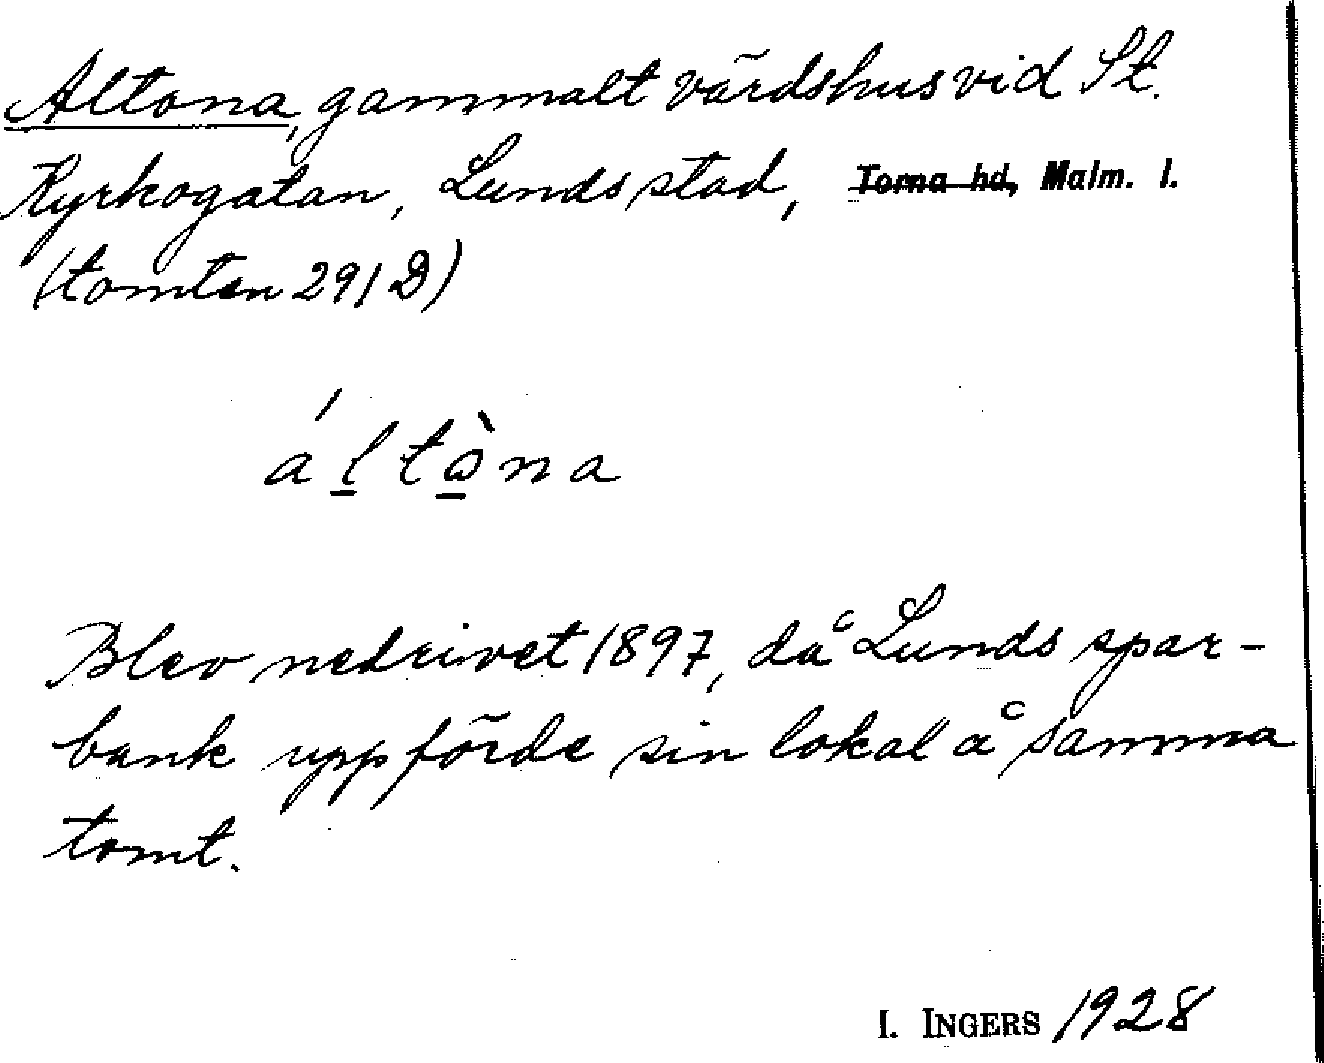 Altona, gammalt värdshus vid St.
Kyrkogatan, Lunds stad, Torna hd, Malm. l.
(tomten 291 B)
áltòna
Blev nedrivet 1897, då Lunds spar-
bank uppförde sin lokal å samma
tomt.
I. INGERS 1928